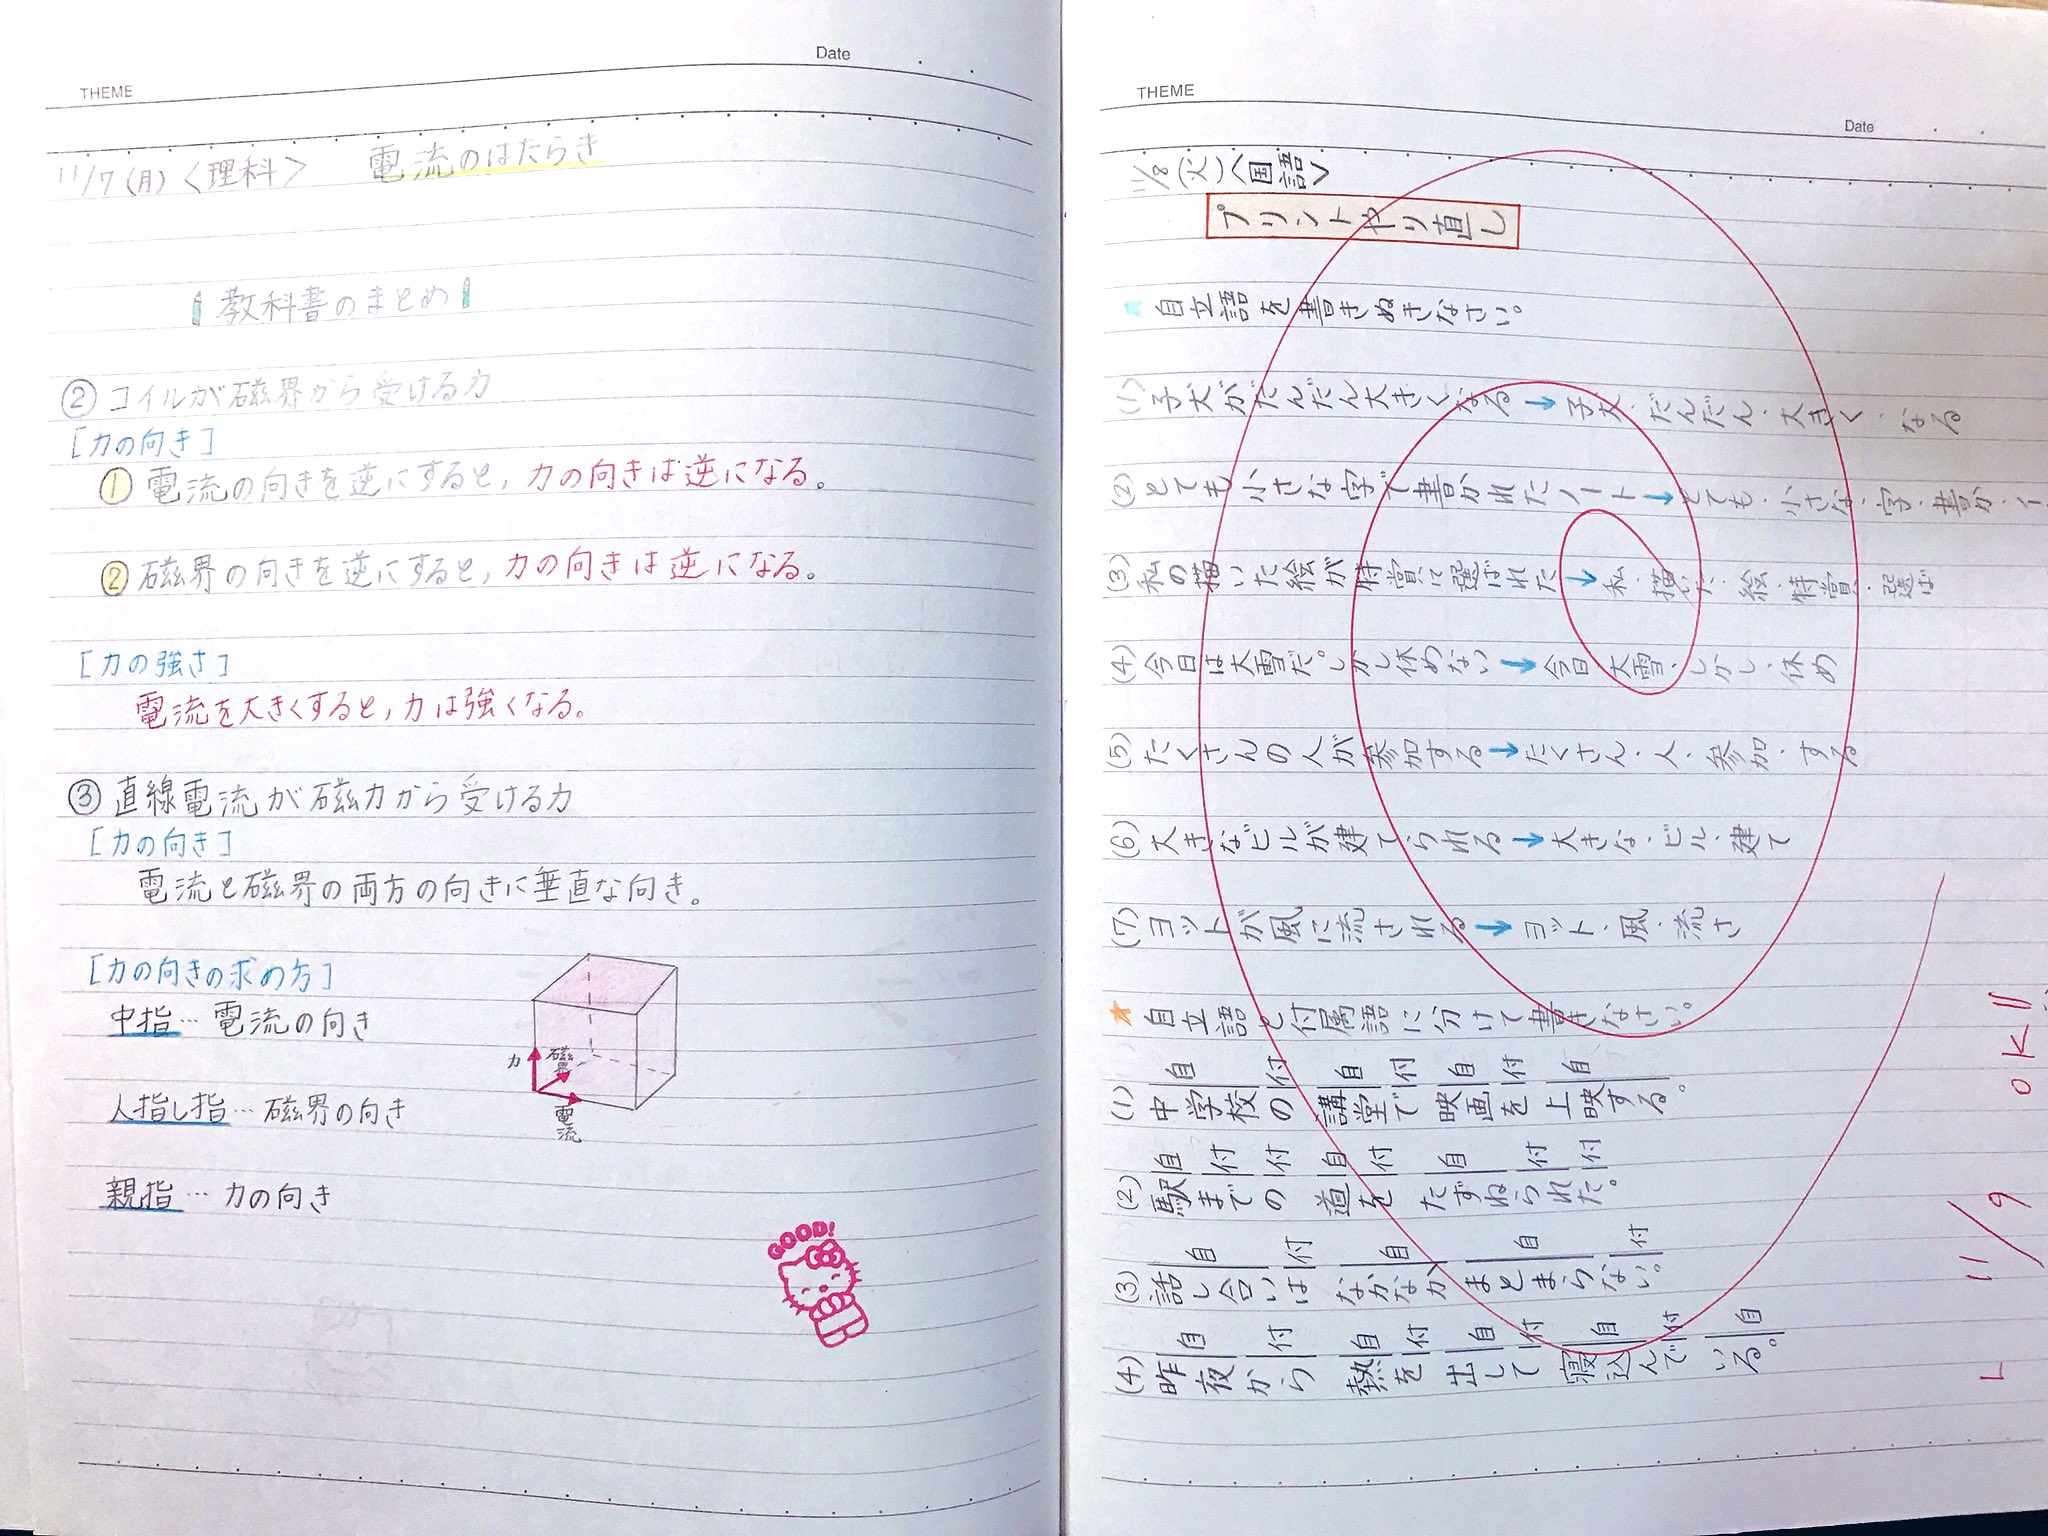 THEME
Date
11/7(月)〈理科〉 電流のはたらき
教科書のまとめ
② コイルが磁界から受ける力
[力の向き]
① 電流の向きを逆にすると,力の向きは逆になる。
② 磁界の向きを逆にすると,力の向きは逆になる。
[力の強さ]
電流を大きくすると,力は強くなる。
③ 直線電流が磁力から受ける力
[力の向き]
電流と磁界の両方の向きに垂直な向き。
[力の向きの求め方]
中指… 電流の向き
人指し指… 磁界の向き
親指… 力の向き
力
磁界
電流
GOOD!
THEME
Date
11/8(火)〈国語〉
プリントやり直し
★自立語を書きぬきなさい。
(1)子犬がだんだん大きくなる→子犬・だんだん・大きく・なる
(2)とても小さな字で書かれたノート→とても・小さな・字・書か・
(3)私の描いた絵が特賞に選ばれた→私・描い・絵・特賞・選ば
(4)今日は大雪だ。しかし休めない→今日・大雪・しかし・休め
(5)たくさんの人が参加する→たくさん・人・参加・する
(6)大きなビルが建てられる→大きな・ビル・建て
(7)ヨットが風に流される→ヨット・風・流さ
★自立語と付属語に分けて書きなさい。
自 付 自 付 自 付 自
(1)中学校の 講堂で 映画を 上映する。
自 付 付 自 付 自 付 付
(2)駅までの 道を たずねられた。
自 付 自 自 付
(3)話し合いは なかなか まとまらない。
自 付 自 付 自 付 自 付 自
(4)昨夜から 熱を 出して 寝込んで いる。
OK!!
11/9